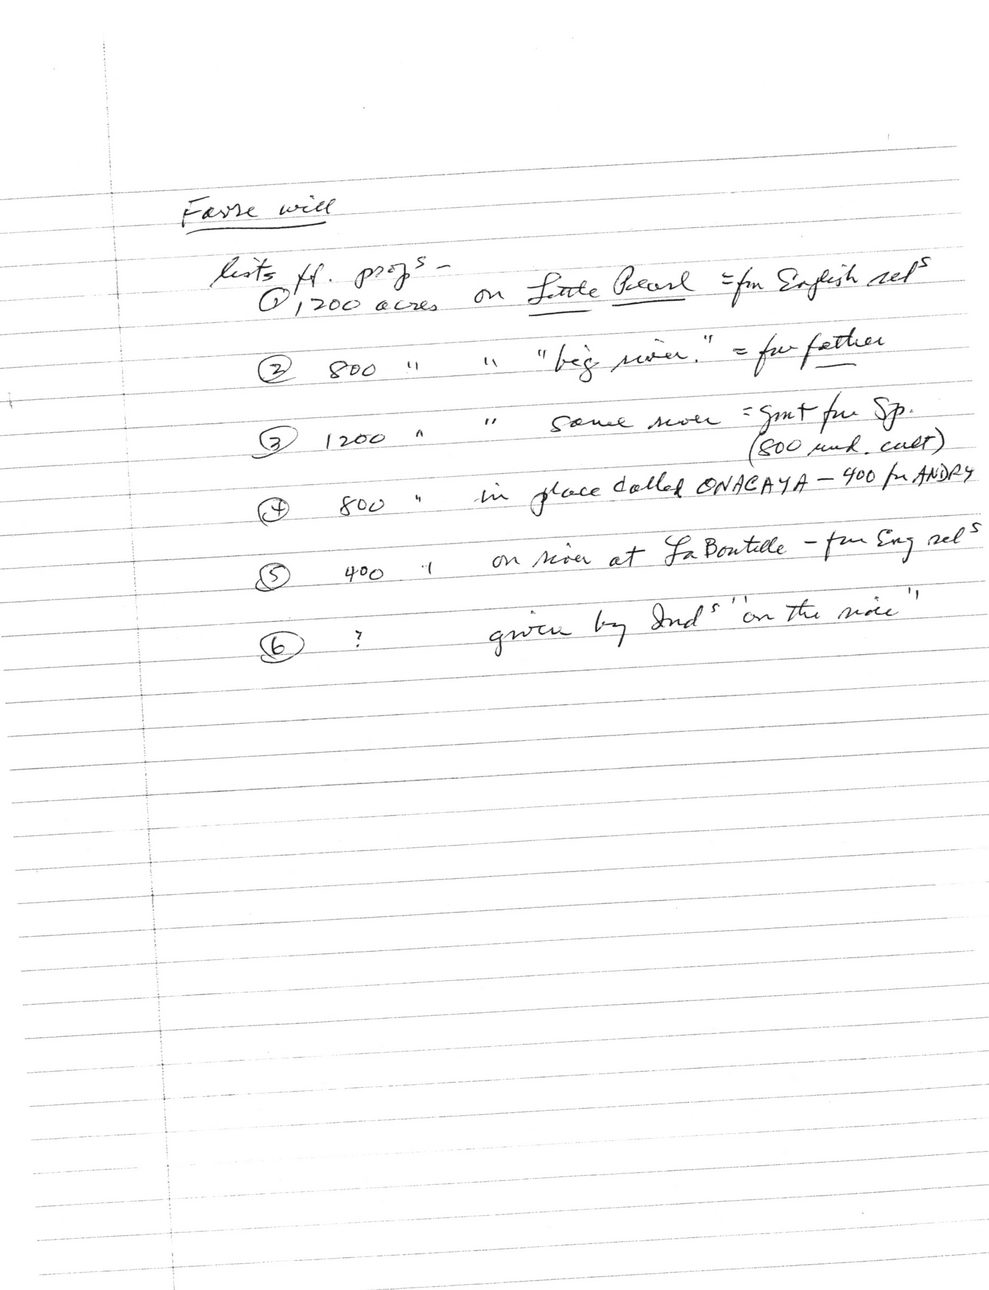 Favre will
lists ff. props -
① 1,200 acres on Little Pearl = fm English relˢ
② 800 " " "big river." = fm father
③ 1200 " " same river = gmt fm Sp.
(800 und. cult)
④ 800 " in place called ONACAYA - 400 fm ANDRY
⑤ 400 " on river at La Boutelle - fm Eng relˢ
⑥ ? given by Indˢ "on the river"